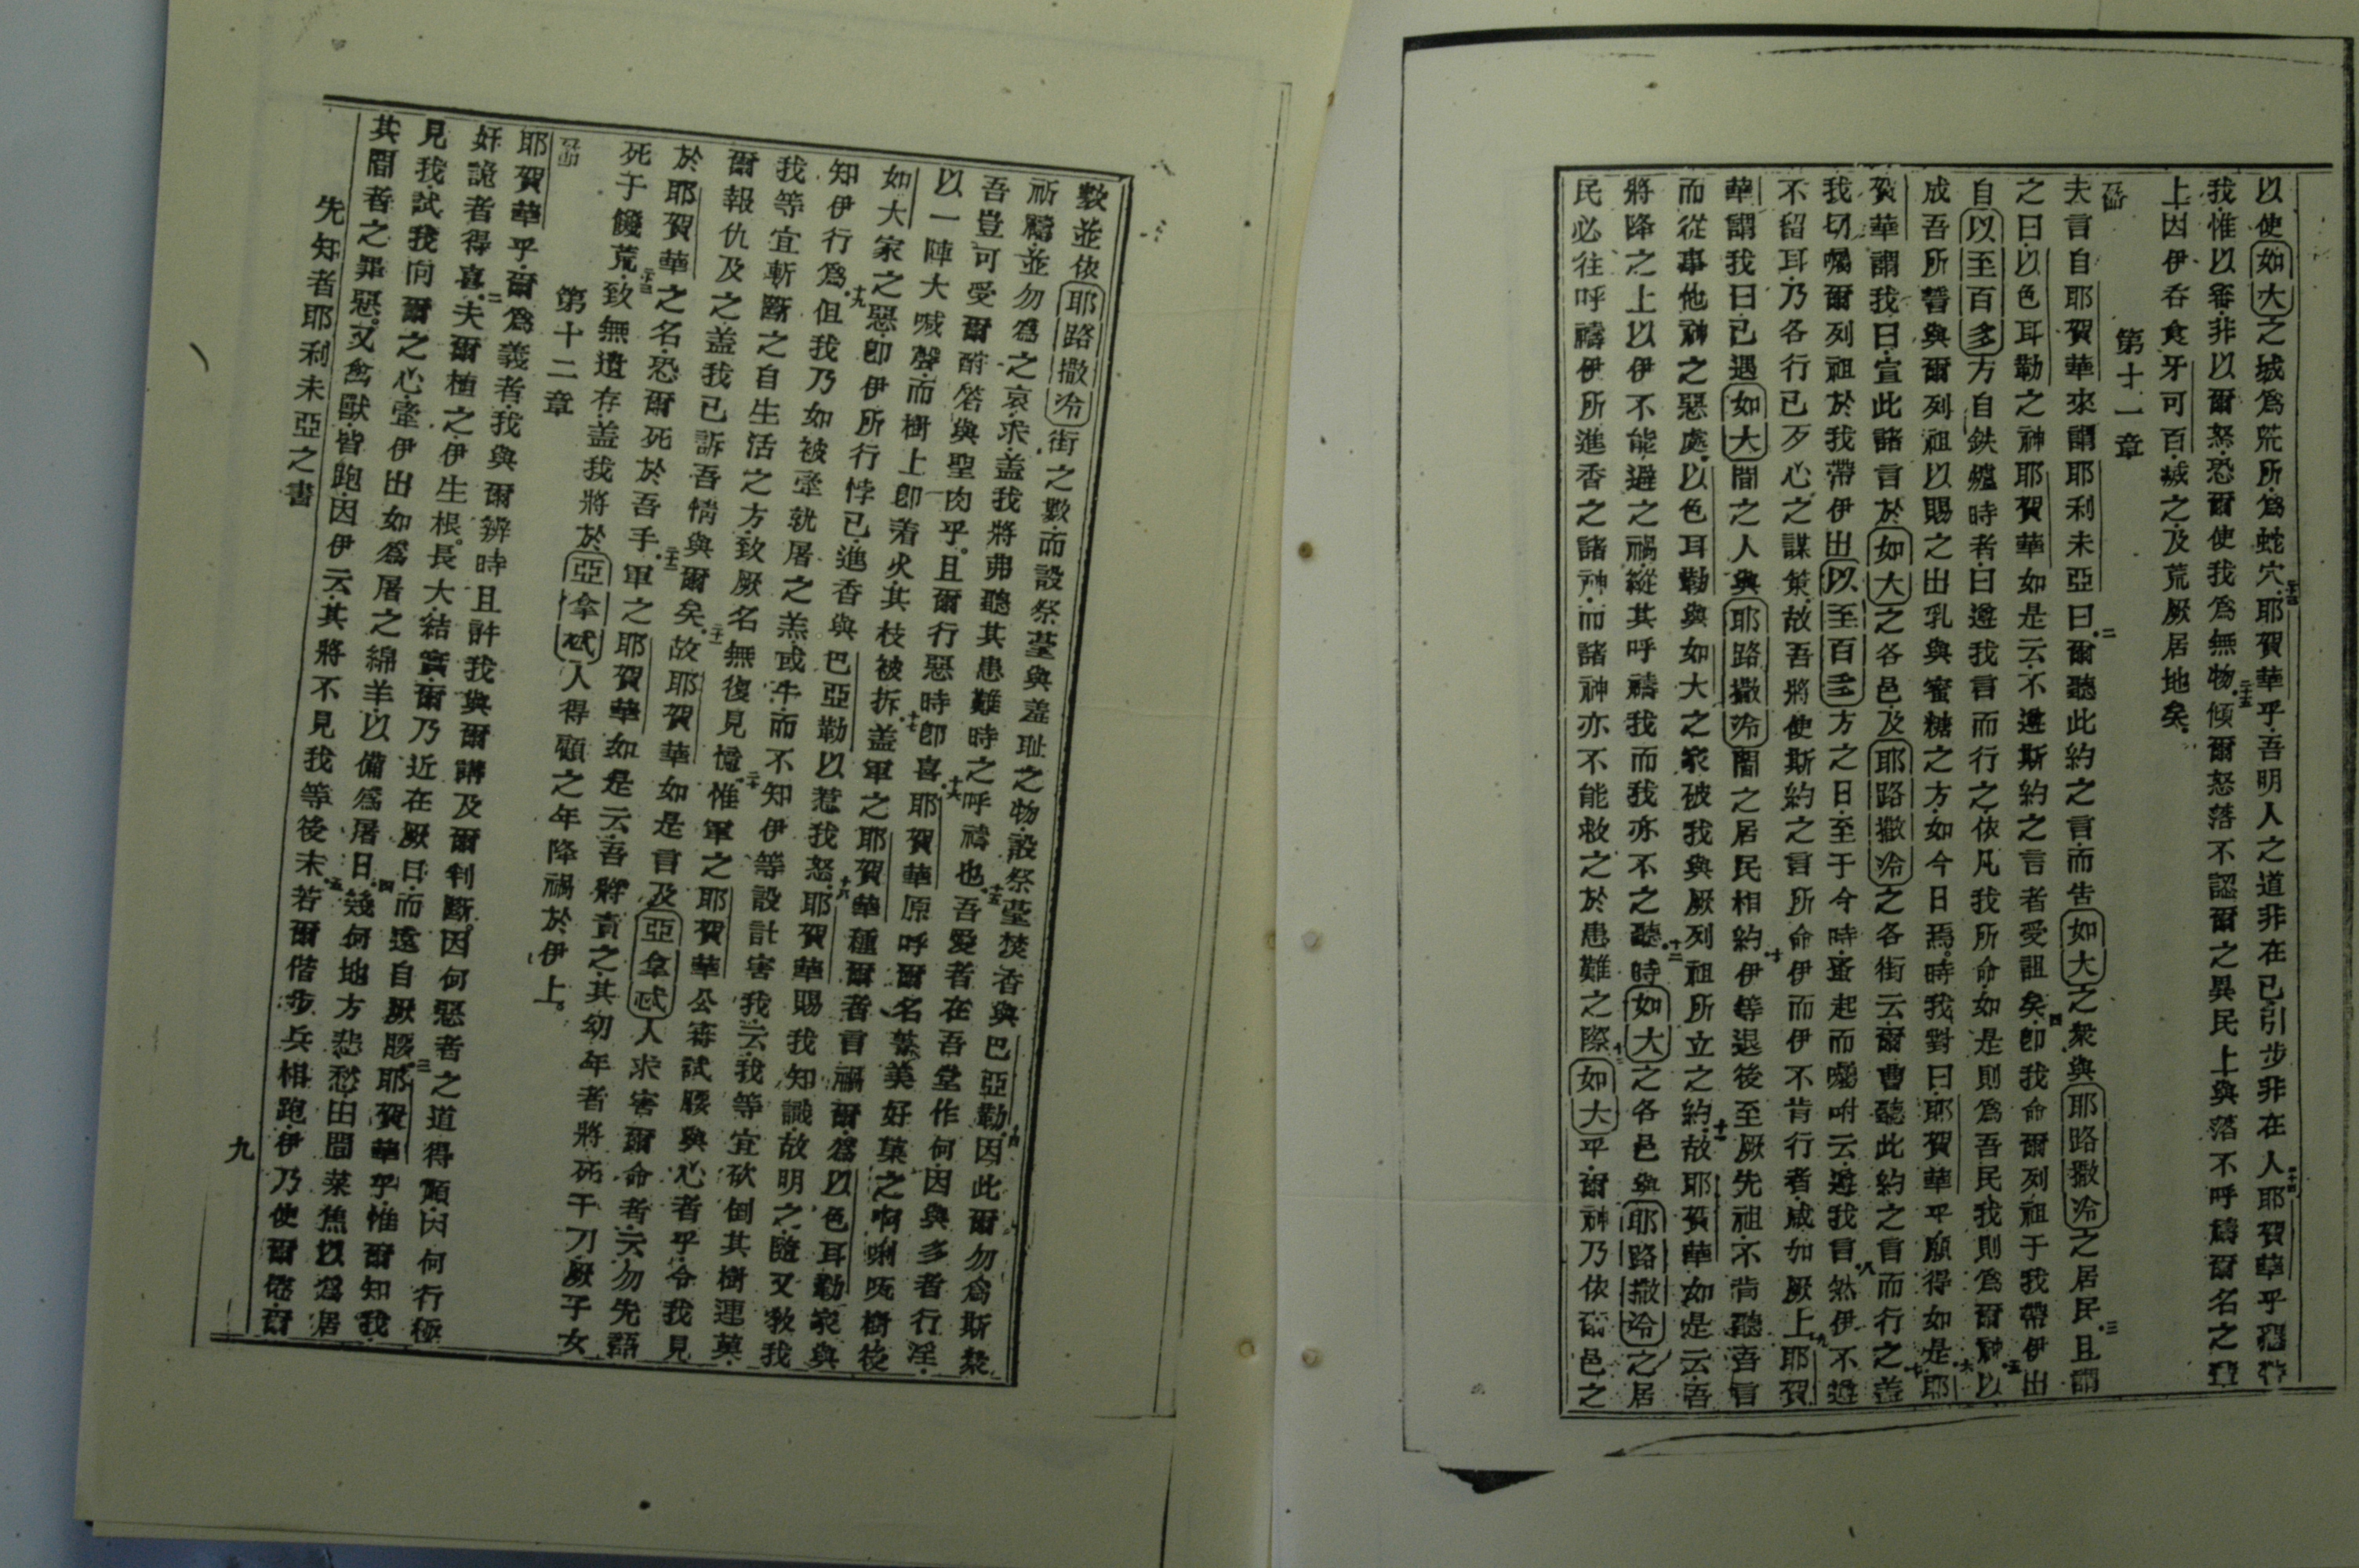 以使如大之城爲荒所、爲蛇穴。二十三耶賀華乎、吾明人之道非在己、引步非在人。二十四耶賀華乎
我、惟以審、非以爾怒、恐爾使我爲無物。二十五傾爾怒落不認爾之異民上、與落不呼禱爾名之
上、因伊吞食牙可百、滅之、及荒厥居地矣。
第十一章
夫言自耶賀華來謂耶利未亞曰、二爾聽此約之言、而告如大之衆、與耶路撒冷之居民。三且謂
之曰、以色耳勒之神耶賀華如是云、不遵斯約之言者受詛矣。四卽我命爾列祖于我帶伊出
自以至百多方、自鉄爐時者、曰、遵我言而行之、依凡我所命、如是則爲吾民、我則爲爾神。五以
成吾所誓與爾列祖、以賜之出乳與蜜糖之方、如今日焉。時我對曰、耶賀華乎、願得如是。六耶
賀華謂我曰、宣此諸言於如大之各邑、及耶路撒冷之各街、云、爾曹聽此約之言而行之。七蓋
我切囑爾列祖、於我帶伊出以至百多方之日、至于今時、蚤起而囑咐云、遵我言。八然伊不遵、
不留耳、乃各行已歹心之謀策、故吾將使斯約之言所命伊而伊不肯行者、咸加厥上。九耶賀
華謂我曰、已遇如大間之人、與耶路撒冷間之居民相約。十伊等退後至厥先祖、不肯聽吾言、
而從事他神之惡處、以色耳勒與如大之家、被我與厥列祖所立之約。十一故耶賀華如是云、吾
將降之上以伊不能避之禍、縱其呼禱我、而我亦不之聽。十二時如大之各邑與耶路撒冷之居
民必往呼禱伊所進香之諸神、而諸神亦不能救之於患難之際。十三如大乎、爾神乃依爾邑之
數、並依耶路撒冷街之數、而設祭䑓與羞耻之物、設祭䑓焚香與巴亞勒。十四因此爾勿爲斯衆
祈禱、並勿爲之哀求、蓋我將弗聽其患難時之呼禱也。十五吾愛者在吾堂作何、因與多者行淫、
吾豈可受爾酧答與聖肉乎。且爾行惡時卽喜。十六耶賀華原呼爾名菉美好菓之啊唎㕭樹、後
以一陣大喊聲、而樹上卽着火、其枝被拆。十七蓋軍之耶賀華種爾者、言禍爾、爲以色耳勒家與
如大家之惡、卽伊所行悖已、進香與巴亞勒、以惹我怒。十八耶賀華賜我知識、故明之、隨又敎我
知伊行爲。十九但我乃如被牽就屠之羔或牛、而不知伊等設計害我、云、我等宜砍倒其樹連菓、
我等宜斬斷之自生活之方、致厥名無復見憶。二十惟軍之耶賀華、公審試腰與心者乎、令我見
爾報仇及之、蓋我已訴吾情與爾矣。二十一故耶賀華如是言及亞拿忒人求害爾命者、云、勿先語
於耶賀華之名、恐爾死於吾手。二十二軍之耶賀華如是云、吾將責之、其幼年者將死于刀、厥子女
死于饑荒。二十三致無遺存、蓋我將於亞拿忒人得顧之年、降禍於伊上。
第十二章
耶賀華乎、爾爲義者、我與爾辨時、且許我與爾講及爾判斷。因何惡者之道得順、因何行極
奸詭者得喜。二夫爾植之、伊生根。長大、結實、爾乃近在厥口、而遠自厥腰。三耶賀華乎、惟爾知我、
見我、試我向爾之心、牽伊出如爲屠之綿羊、以備爲屠日。四幾何地方悲愁、田間菜焦、以爲居
其間者之罪惡。又禽獸皆跑、因伊云、其將不見我等後末。五若爾偕步兵相跑、伊乃使爾倦、爾
先知者耶利未亞之書
九